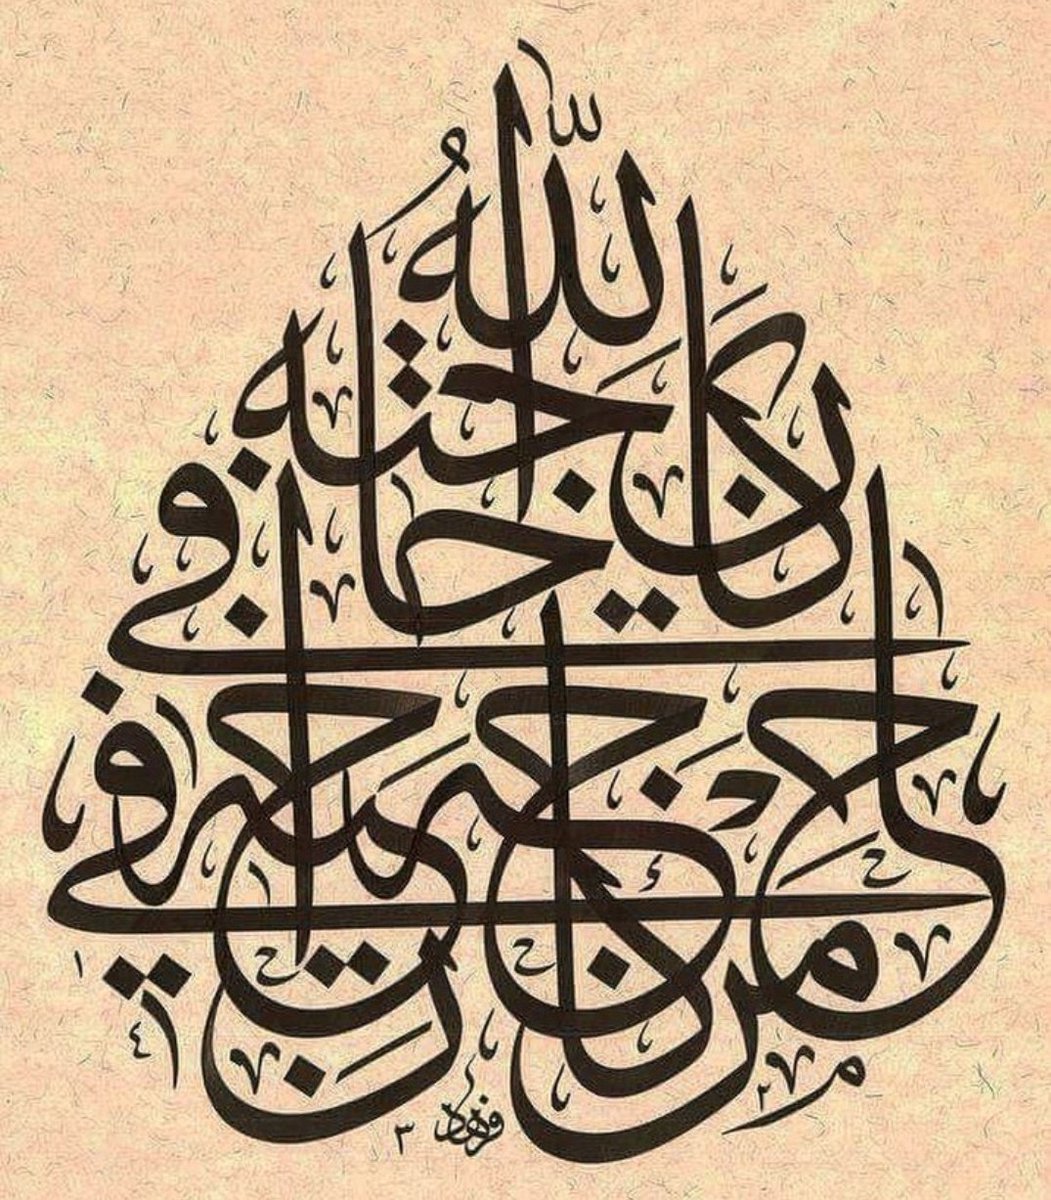 من كان في حاجة أخيه
كان الله في حاجته
فرهاد